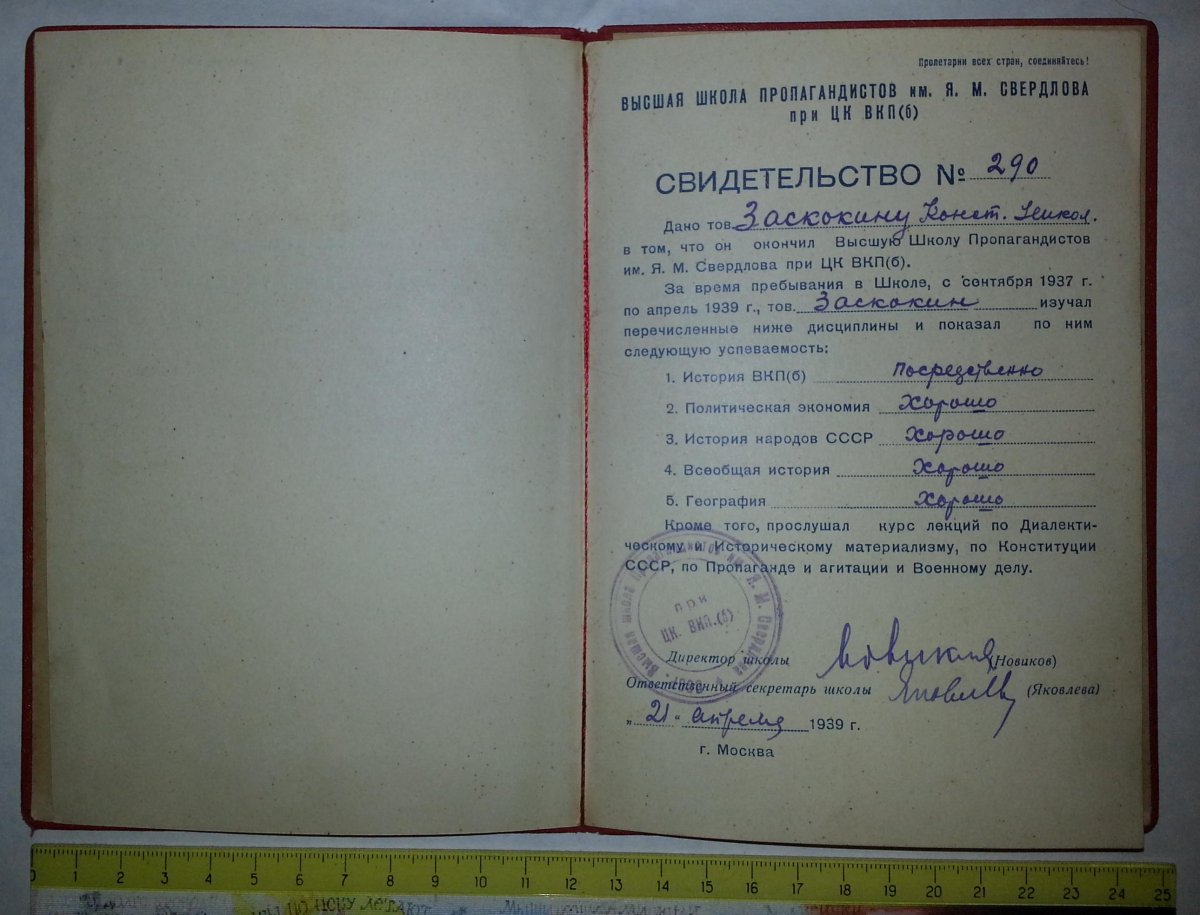 Пролетарии всех стран, соединяйтесь!
ВЫСШАЯ ШКОЛА ПРОПАГАНДИСТОВ им. Я. М. СВЕРДЛОВА
при ЦК ВКП(б)
СВИДЕТЕЛЬСТВО № 290
Дано тов. Заскокину Конст. Никол.
в том, что он окончил Высшую Школу Пропагандистов
им. Я. М. Свердлова при ЦК ВКП(б).
За время пребывания в Школе, с сентября 1937 г.
по апрель 1939 г., тов. Заскокин изучал
перечисленные ниже дисциплины и показал по ним
следующую успеваемость:
1. История ВКП(б) Посредственно
2. Политическая экономия Хорошо
3. История народов СССР Хорошо
4. Всеобщая история Хорошо
5. География Хорошо
Кроме того, прослушал курс лекций по Диалекти-
ческому и Историческому материализму, по Конституции
СССР, по Пропаганде и агитации и Военному делу.
Высшая школа пропагандистов им. Я. М. Свердлова
при
ЦК. ВКП.(б)
Директор школы Новиков (Новиков)
Ответственный секретарь школы Яковлева (Яковлева)
„21" апреля 1939 г.
г. Москва
0 1 2 3 4 5 6 7 8 9 10 11 12 13 14 15 16 17 18 19 20 21 22 23 24 25